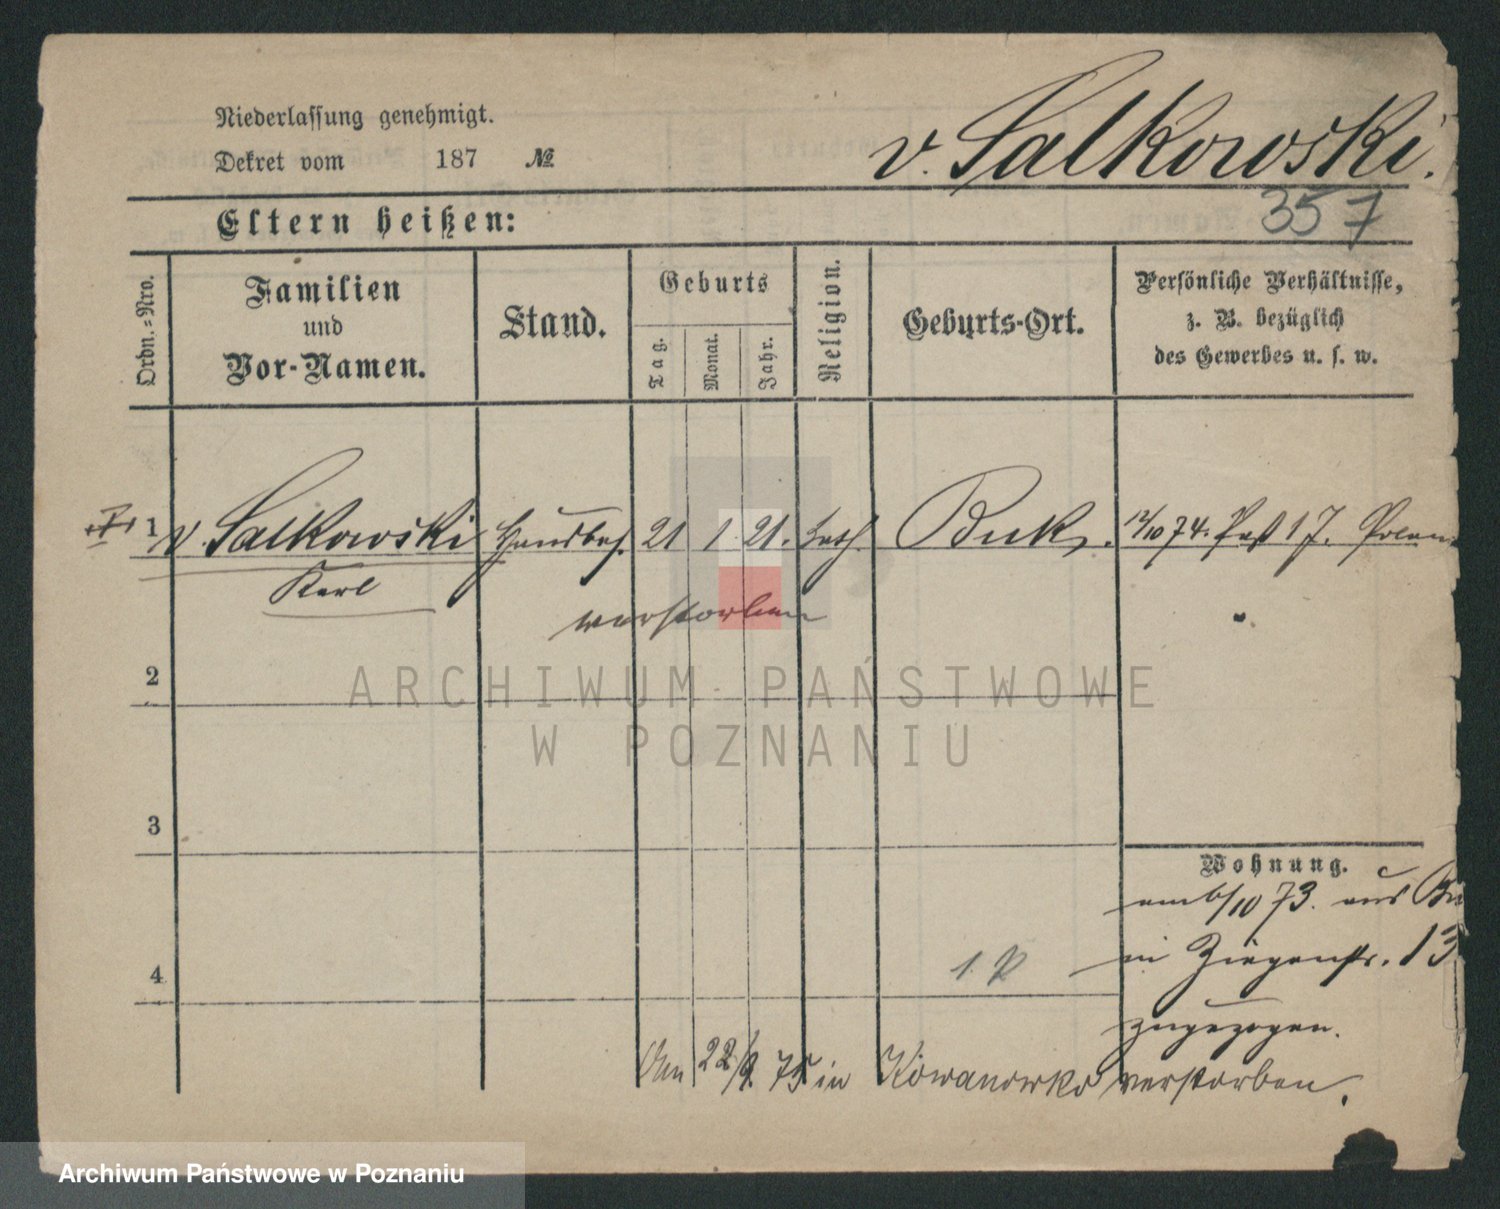 Niederlassung genehmigt.
Dekret vom 187 №
v. Salkowski.
357
Eltern heißen:
Ordn.-Nro.
Familien
und
Vor-Namen.
Stand.
Geburts
Tag.
Monat.
Jahr.
Religion.
Geburts-Ort.
Persönliche Verhältnisse,
z. B. bezüglich
des Gewerbes u. s. w.
1 v. Salkowski Hausbes. 21 1. 21. kath. Buk. 12/10 74. Paß 1 J. Polen
Karl
verstorben
2
ARCHIWUM PAŃSTWOWE
W POZNANIU
3
Wohnung.
am 6/10 73. aus Bu
in Ziegenstr. 13
4
zugezogen.
Den 22/2 75 in Kowanowko verstorben.
Archiwum Państwowe w Poznaniu